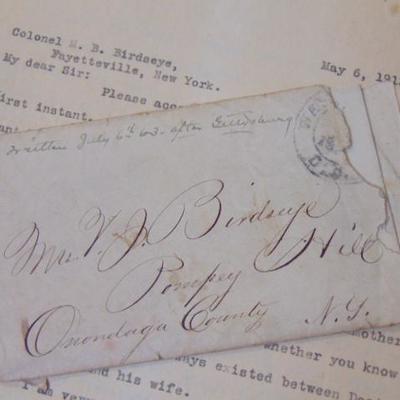 Colonel M. B. Birdseye,
Fayetteville, New York.
May 6, 191
My dear Sir:
Please acc
first instant.
Written July 6th 63 - after Gettysburg
Birdseye
Pompey Hill
Onondaga County
N.Y.
mother
whether you know
ays existed between
and his wife.
I am very